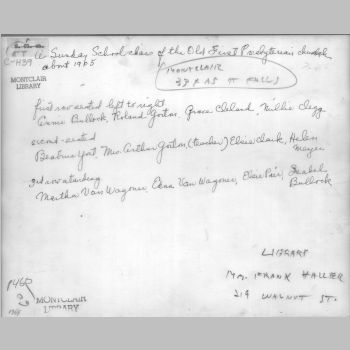 C-439
A Sunday School class of the Old First Presbyterian church
about 1905
MONTCLAIR
LIBRARY
MONTCLAIR
first row seated left to right
Bullock, Roland Gorton, Grace Cleland, Nellie Clegg
second-seated
Mrs. Arthur Gorton, (teacher) Elsie Clark, Helen
Meyer
3rd row standing
Martha Van Wagoner, Edna Van Wagoner, Elsie Pair, Isabel
Bullock
LIBRARY
Mr. FRANK HALLIER
214 WALNUT ST.
1460
MONTCLAIR
LIBRARY